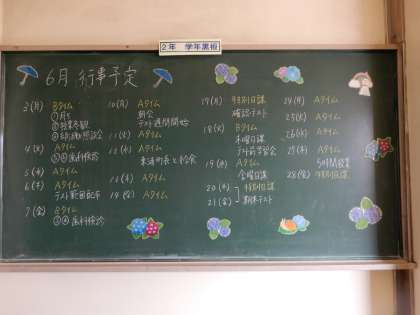 2年 学年黒板
6月 行事予定
3(月) Bタイム
4(火) Aタイム
5(水) Aタイム
6(木) Aタイム
テスト範囲配布
7(金) Bタイム
③④歯科検診
10(月) Aタイム
朝会
テスト週間開始
11(火) Aタイム
12(水) Aタイム
13(木) Aタイム
14(金) Aタイム
17(月) 特別日課
確認テスト
18(火) Bタイム
木曜日課
テスト前学習会
19(水) Aタイム
金曜日課
20(木) 特別日課
21(金) 期末テスト
24(月) Aタイム
25(火) Aタイム
26(水) Aタイム
27(木) Aタイム
5時間授業
28(金) 特別日課